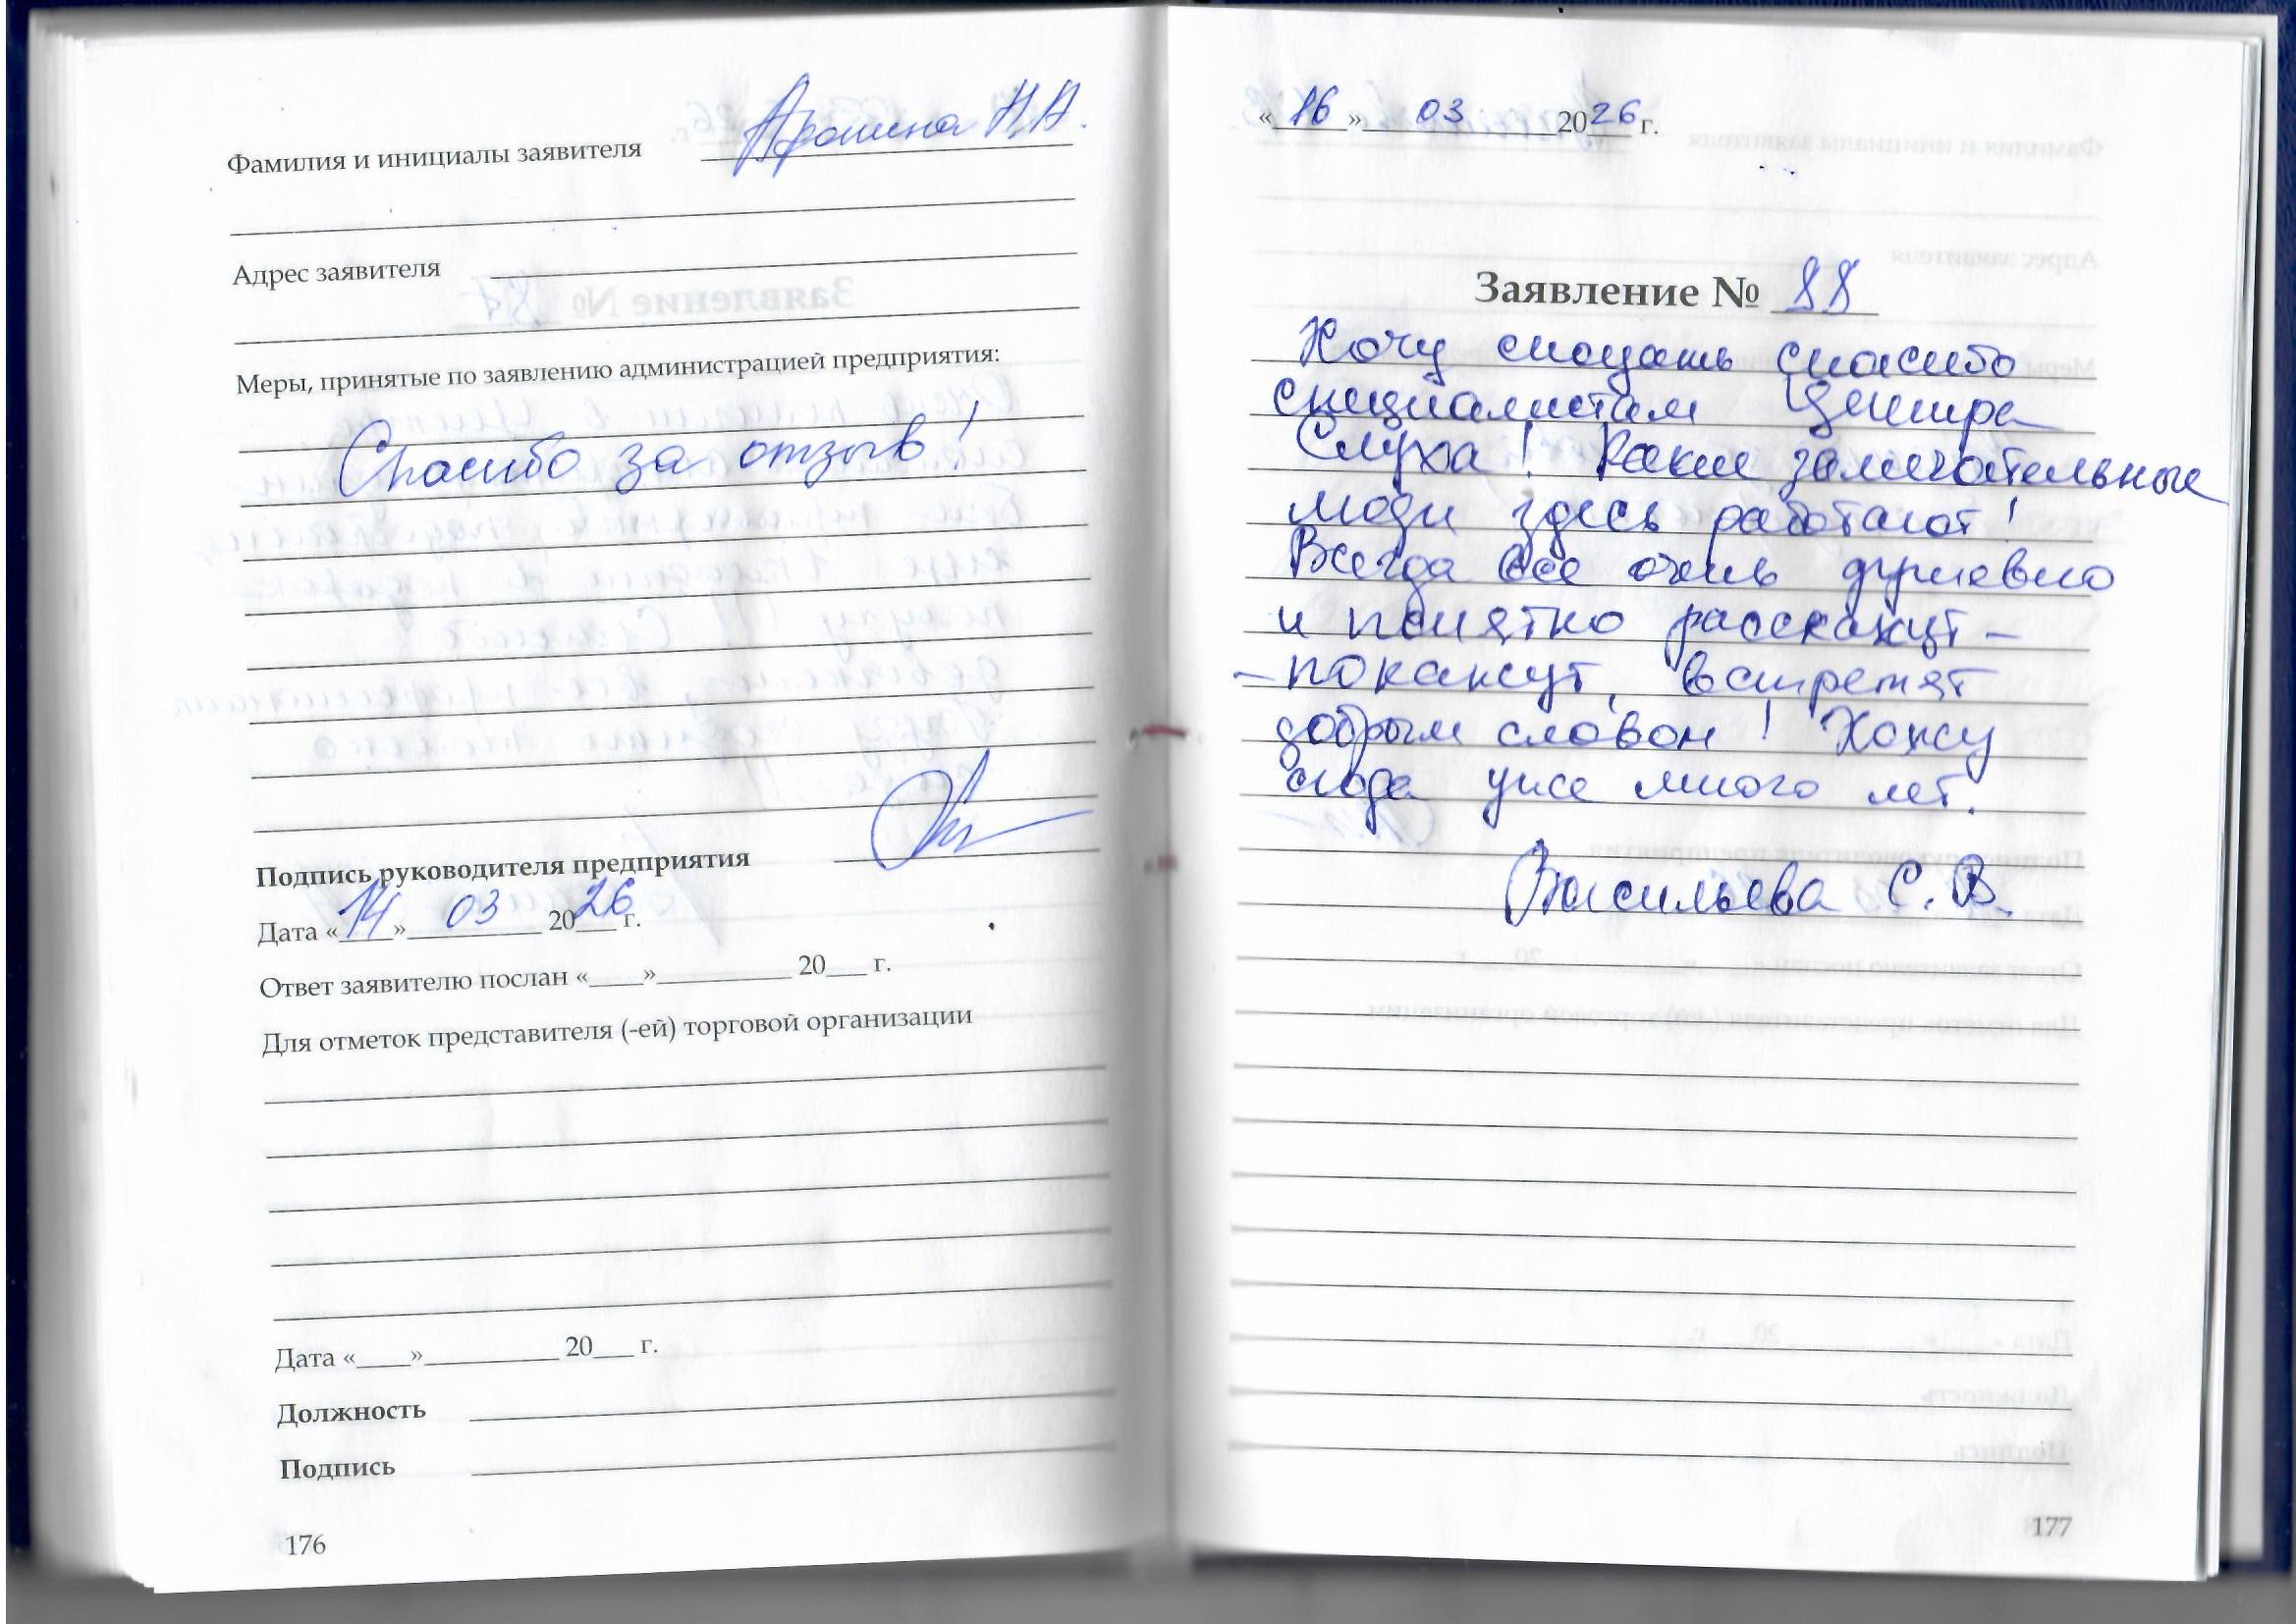 Фамилия и инициалы заявителя Аронина Н.А.
Адрес заявителя
Меры, принятые по заявлению администрацией предприятия:
Спасибо за отзыв!
Подпись руководителя предприятия
Дата «14» 03 2026 г.
Ответ заявителю послан «____»__________ 20___ г.
Для отметок представителя (-ей) торговой организации
Дата «____»__________ 20___ г.
Должность
Подпись
176
«16» 03 2026 г.
Заявление № 88
Хочу сказать спасибо
специалистам Центра
Слуха! Какие замечательные
люди здесь работают!
Всегда все очень душевно
и понятно расскажут –
– покажут, встретят
добрым словом! Хожу
сюда уже много лет.
Васильева С. В.
177